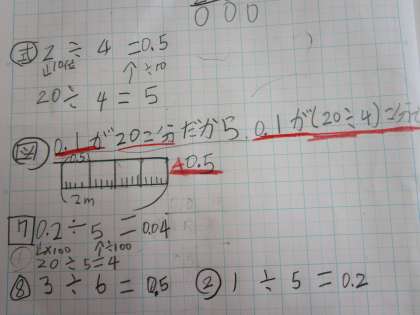 000
式 2÷4=0.5
↓10倍 ↑÷10
20÷4=5
図 0.1が20こ分だから、0.1が(20÷4)こ分で
(0.5) A 0.5
2m
7 0.2÷5=0.04
↓×100 ↑÷100
20÷5=4
⑧ 3÷6=0.5 ② 1÷5=0.2